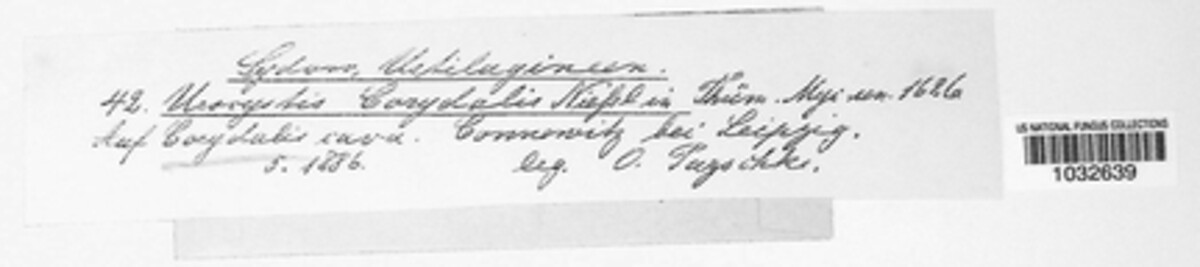 Sydow, Ustilagineen.
42. Urocystis Corydalis Niessl in Thüm. Myc. un. 1626
Auf Corydalis cava. Connewitz bei Leipzig.
5. 1886. leg. O. Pazschke.
US NATIONAL FUNGUS COLLECTIONS
1032639